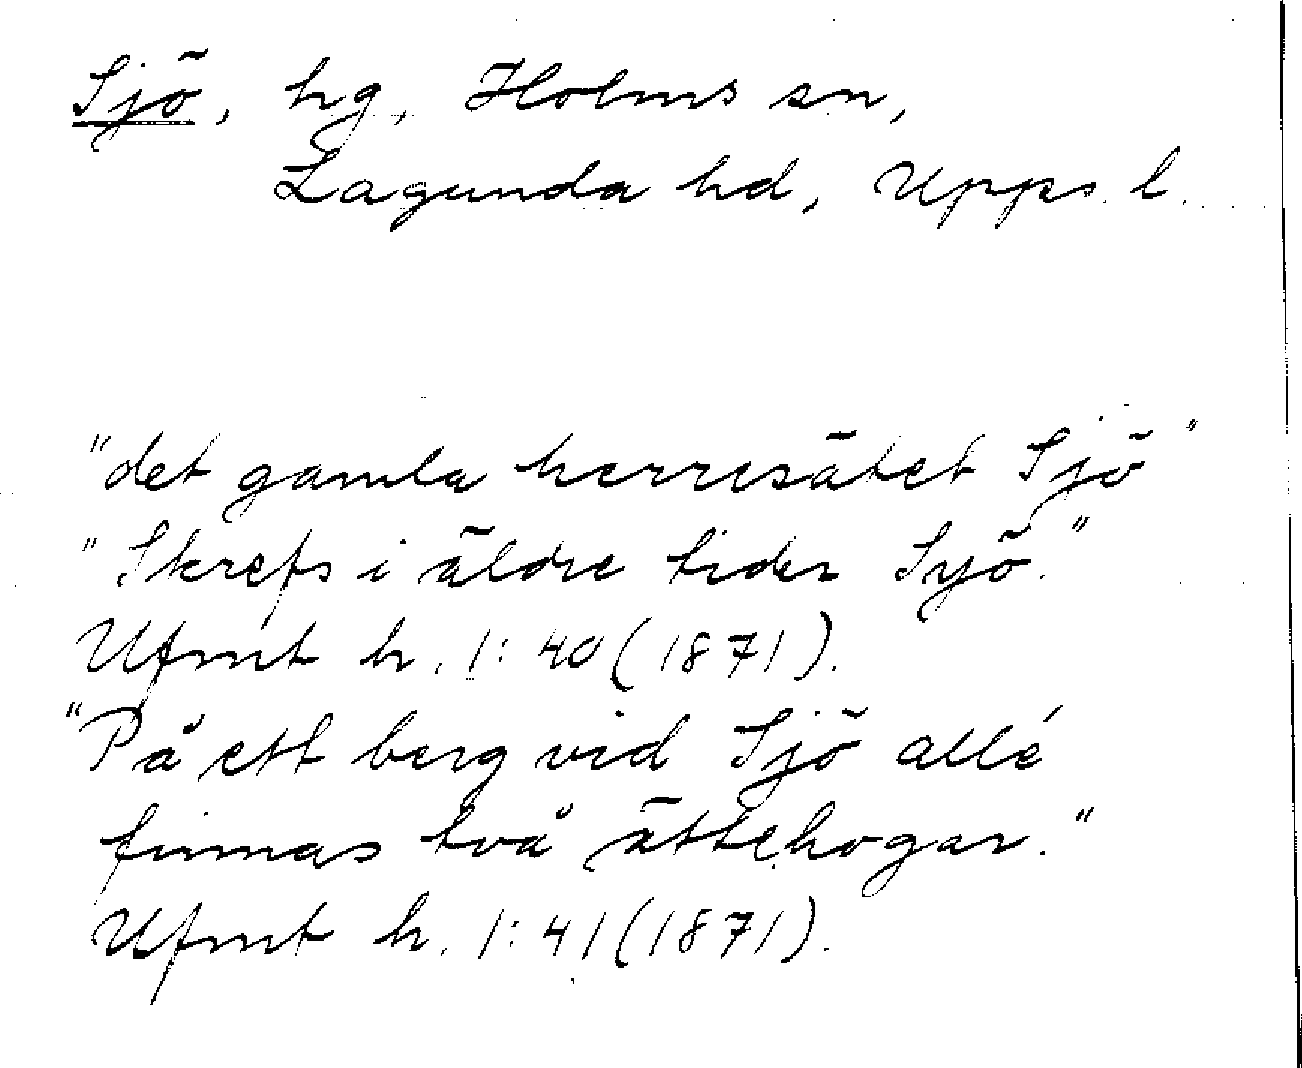 Sjö, hg, Holms sn,
Lagunda hd, Upps. l.
"det gamla herresätet Sjö"
"Skrefs i äldre tider Syö."
Ufmt h. 1:40 (1871).
"På ett berg vid Sjö allé
finnas två ättehogar."
Ufmt h. 1:41 (1871).